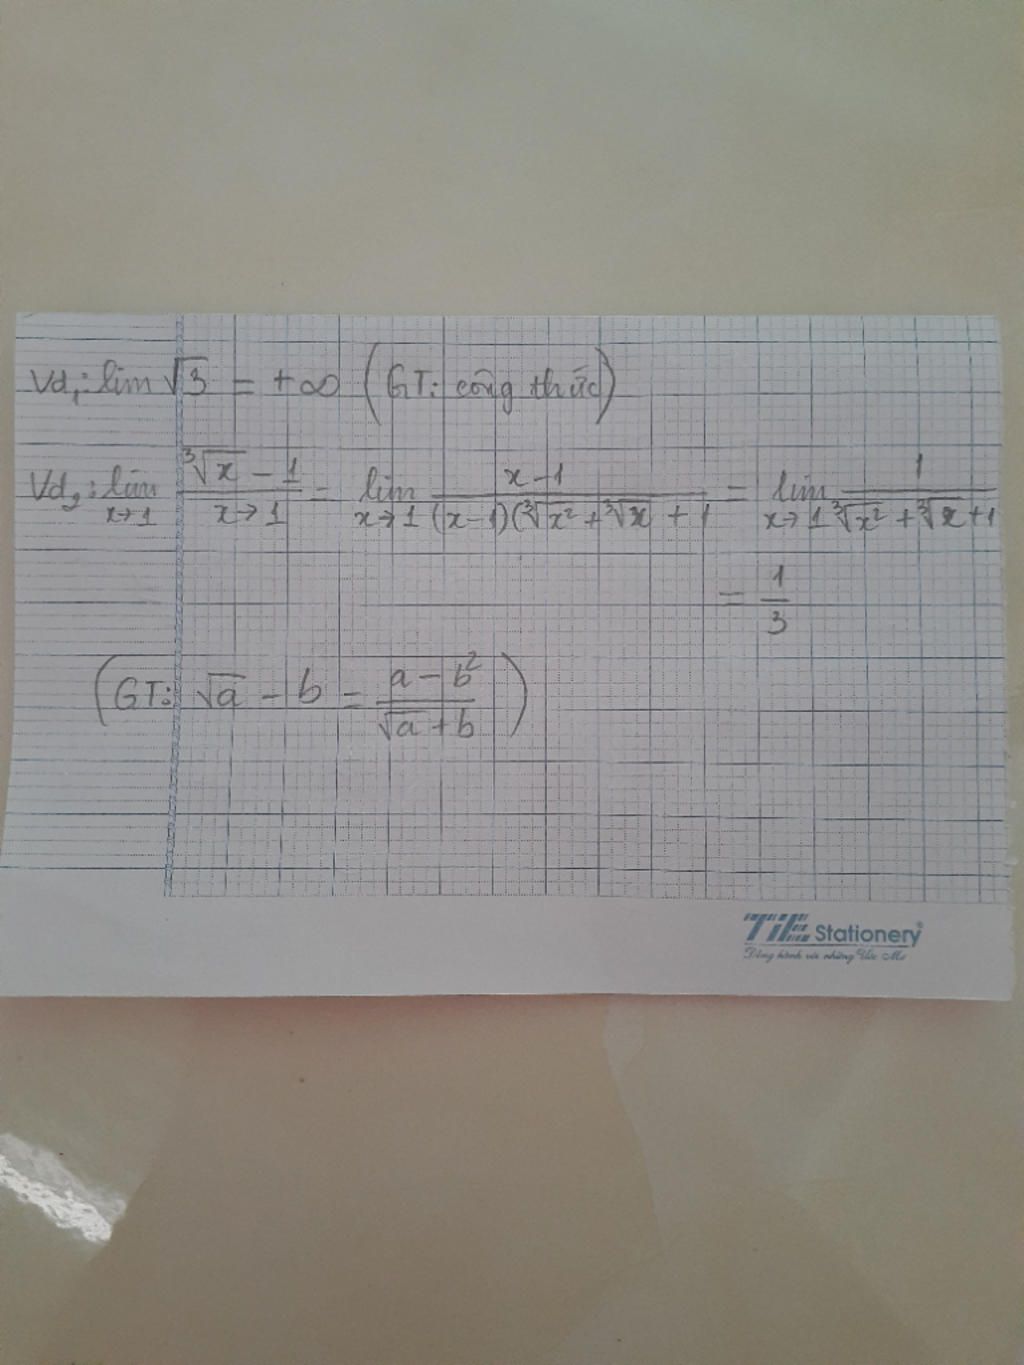 Vd₁: lim √3 = +∞ (GT: công thức)
Vd₂: lim x→1 (∛x - 1)/(x→1) = lim x→1 (x-1)/((x-1)(∛x² + ∛x + 1) = lim x→1 1/(∛x² + ∛x + 1)
= 1/3
(GT: √a - b = (a - b²)/(√a + b))
TiE Stationery®
Đồng hành với những Ước Mơ